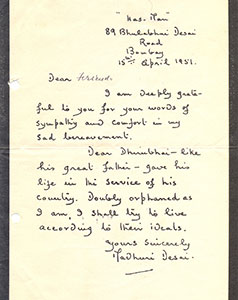 "Has-Man"
89 Bhulabhai Desai
Road
Bombay
15th April 1951.
Dear friend.
I am deeply grate-
ful to you for your words of
sympathy and comfort in my
sad bereavement.
Dear Dhirubhai - like
his great father - gave his
life in the service of his
country. Doubly orphaned as
I am, I shall try to live
according to their ideals.
Yours Sincerely
Madhuri Desai.